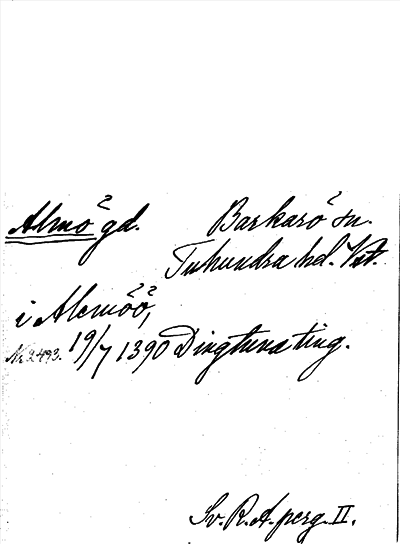 Almö gd. Barkarö sn.
Tuhundra hd. Vstm.
i Alemöö,
Nr 2493. 19/7 1390 Dingtuna ting.
Sv. R. A. perg. II.